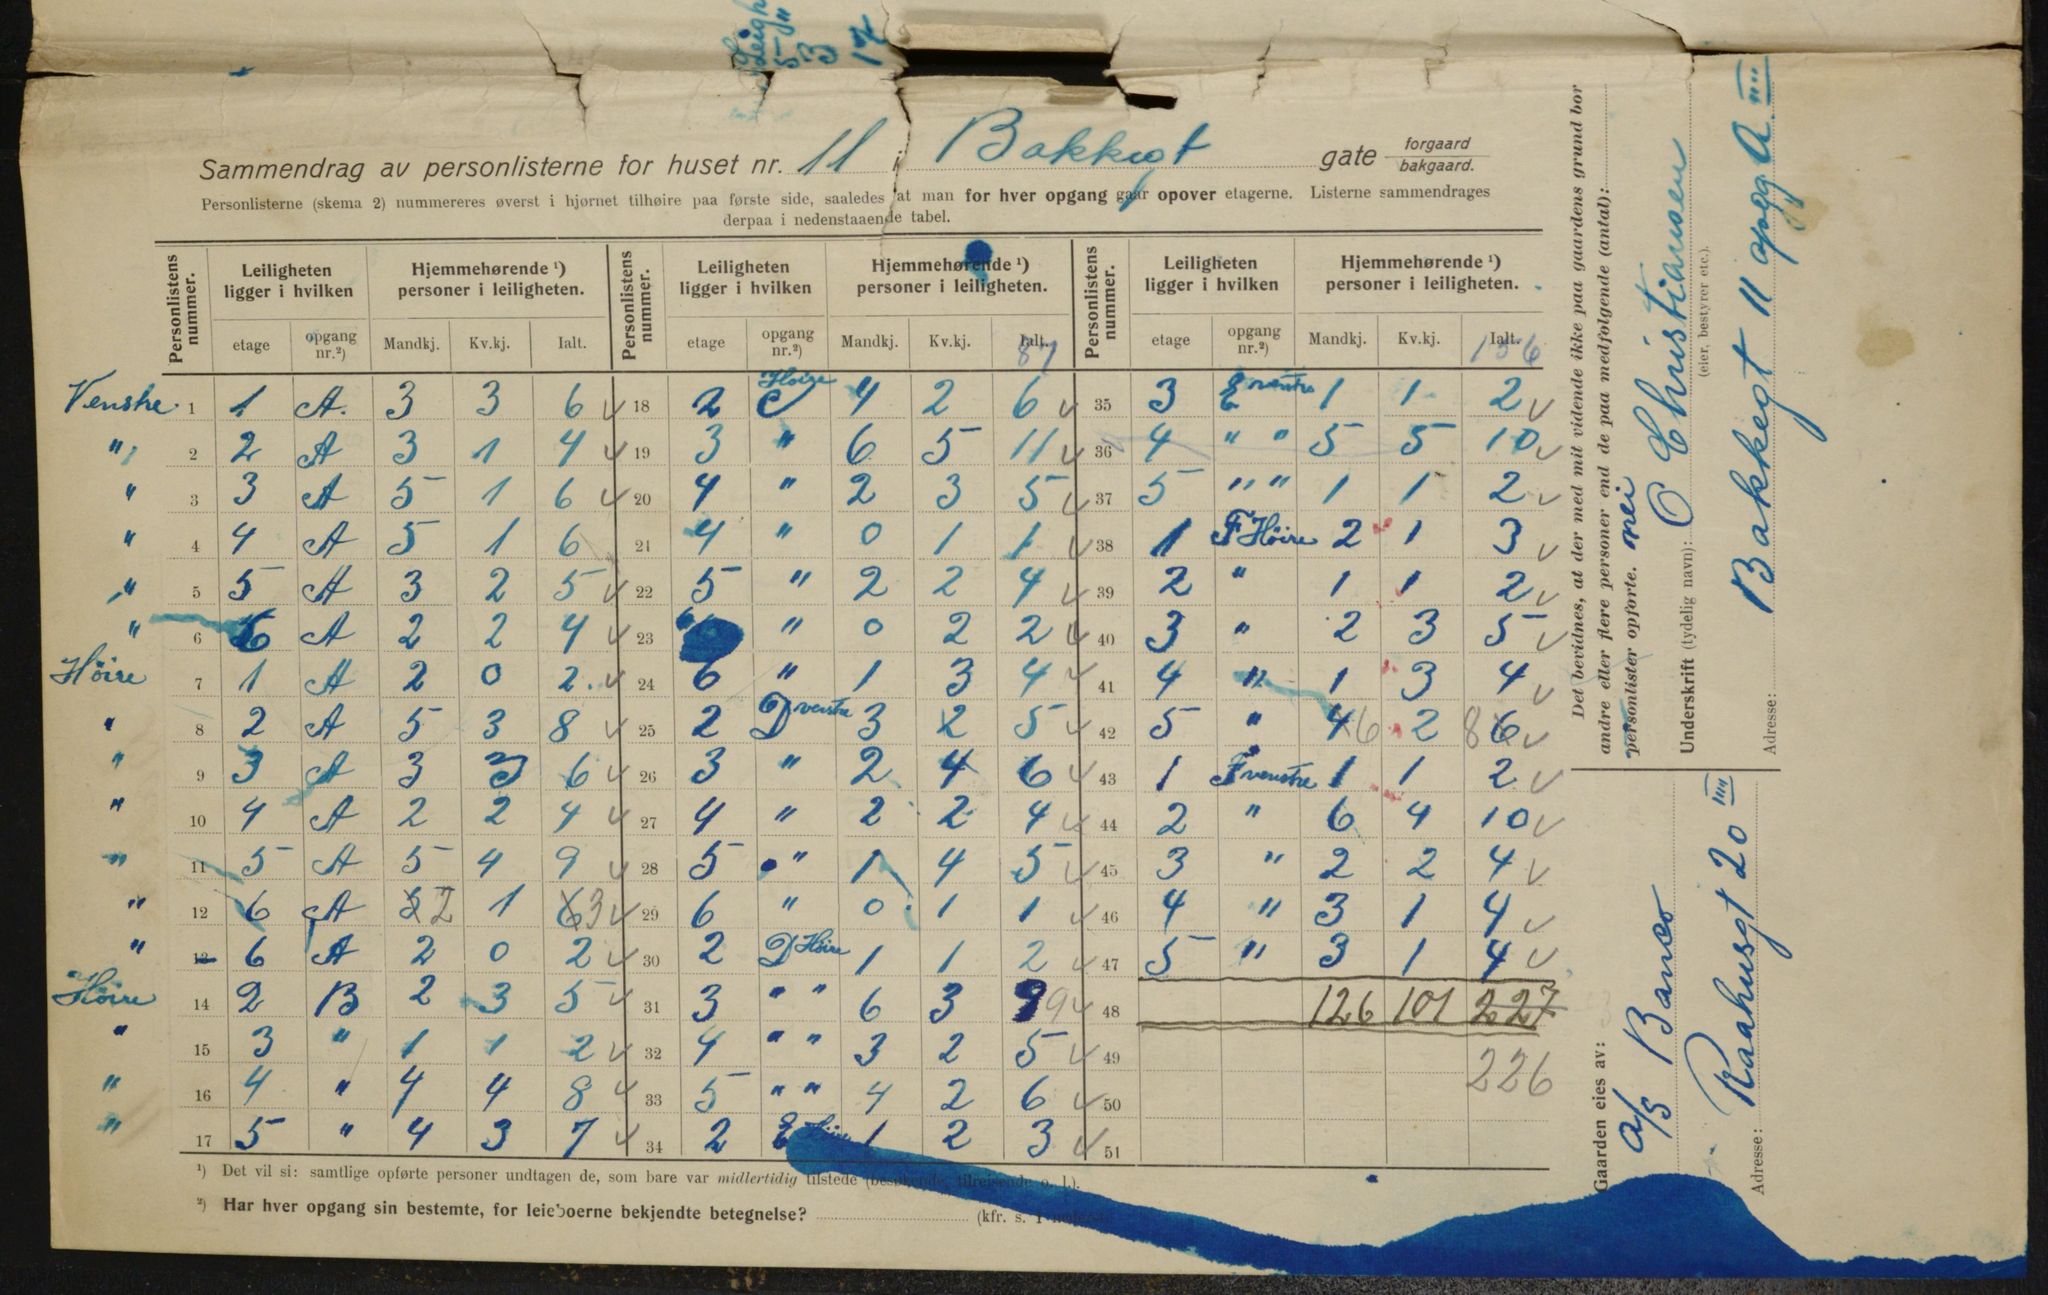 Leigh
5 "
3
17
Sammendrag av personlisterne for huset nr. 11 i Bakkegt gate forgaard / bakgaard.
Personlisterne (skema 2) nummereres øverst i hjørnet tilhøire paa første side, saaledes at man for hver opgang gaar opover etagerne. Listerne sammendrages
derpaa i nedenstaaende tabel.
Personlistens nummer. | Leiligheten ligger i hvilken | Hjemmehørende ¹) personer i leiligheten. | Personlistens nummer. | Leiligheten ligger i hvilken | Hjemmehørende ¹) personer i leiligheten. | Personlistens nummer. | Leiligheten ligger i hvilken | Hjemmehørende ¹) personer i leiligheten.
etage | opgang nr.²) | Mandkj. | Kv.kj. | Ialt. | etage | opgang nr.²) | Mandkj. | Kv.kj. | Ialt. 87 | etage | opgang nr.²) | Mandkj. | Kv.kj. | Ialt. 156
Venstre 1 | 1 | A. | 3 | 3 | 6 | 18 | 2 | C Höire | 4 | 2 | 6 | 35 | 3 | E venstre | 1 | 1 | 2
" 2 | 2 | A | 3 | 1 | 4 | 19 | 3 | " | 6 | 5 | 11 | 36 | 4 | " " | 5 | 5 | 10
" 3 | 3 | A | 5 | 1 | 6 | 20 | 4 | " | 2 | 3 | 5 | 37 | 5 | " " | 1 | 1 | 2
" 4 | 4 | A | 5 | 1 | 6 | 21 | 4 | " | 0 | 1 | 1 | 38 | 1 | F Höire | 2 | 1 | 3
" 5 | 5 | A | 3 | 2 | 5 | 22 | 5 | " | 2 | 2 | 4 | 39 | 2 | " | 1 | 1 | 2
" 6 | 6 | A | 2 | 2 | 4 | 23 | | " | 0 | 2 | 2 | 40 | 3 | " | 2 | 3 | 5
Höire 7 | 1 | A | 2 | 0 | 2 | 24 | 6 | " | 1 | 3 | 4 | 41 | 4 | " | 1 | 3 | 4
" 8 | 2 | A | 5 | 3 | 8 | 25 | 2 | D venstre | 3 | 2 | 5 | 42 | 5 | " | 4 6 | 2 | 8 6
" 9 | 3 | A | 3 | 3 | 6 | 26 | 3 | " | 2 | 4 | 6 | 43 | 1 | F venstre | 1 | 1 | 2
" 10 | 4 | A | 2 | 2 | 4 | 27 | 4 | " | 2 | 2 | 4 | 44 | 2 | " | 6 | 4 | 10
" 11 | 5 | A | 5 | 4 | 9 | 28 | 5 | " | 1 | 4 | 5 | 45 | 3 | " | 2 | 2 | 4
" 12 | 6 | A | 2 | 1 | 3 | 29 | 6 | " | 0 | 1 | 1 | 46 | 4 | " | 3 | 1 | 4
" 13 | 6 | A | 2 | 0 | 2 | 30 | 2 | D Höire | 1 | 1 | 2 | 47 | 5 | " | 3 | 1 | 4
Höire 14 | 2 | B | 2 | 3 | 5 | 31 | 3 | " " | 6 | 3 | 9 9 | 48 | | | 126 | 101 | 227
" 15 | 3 | " | 1 | 1 | 2 | 32 | 4 | " " | 3 | 2 | 5 | 49 | | | | | 226
" 16 | 4 | " | 4 | 4 | 8 | 33 | 5 | " " | 4 | 2 | 6 | 50
" 17 | 5 | " | 4 | 3 | 7 | 34 | 2 | E | 1 | 2 | 3 | 51
¹) Det vil si: samtlige opførte personer undtagen de, som bare var midlertidig tilstede (besøkende, tilreisende o. l.).
²) Har hver opgang sin bestemte, for leieboerne bekjendte betegnelse? (kfr. s. 1 nederst)
Det bevidnes, at der med mit vidende ikke paa gaardens grund bor
andre eller flere personer end de paa medfølgende (antal):
personlister opførte. nei
Underskrift (tydelig navn): O Christiansen
(eier, bestyrer etc.).
Adresse: Bakkegt 11 opg. A III
Gaarden eies av: A/S Banco
Adresse: Raahusgt 20 III